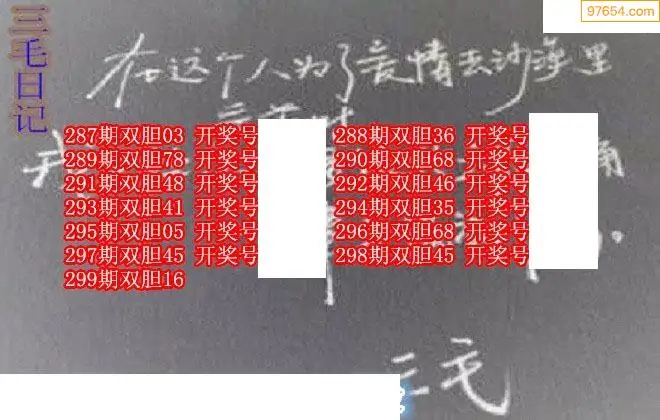 97654.com
三毛日记
在这个人为了爱情去沙漠里
287期双胆03 开奖号 288期双胆36 开奖号
289期双胆78 开奖号 290期双胆68 开奖号
291期双胆48 开奖号 292期双胆46 开奖号
293期双胆41 开奖号 294期双胆35 开奖号
295期双胆05 开奖号 296期双胆68 开奖号
297期双胆45 开奖号 298期双胆45 开奖号
299期双胆16
三毛